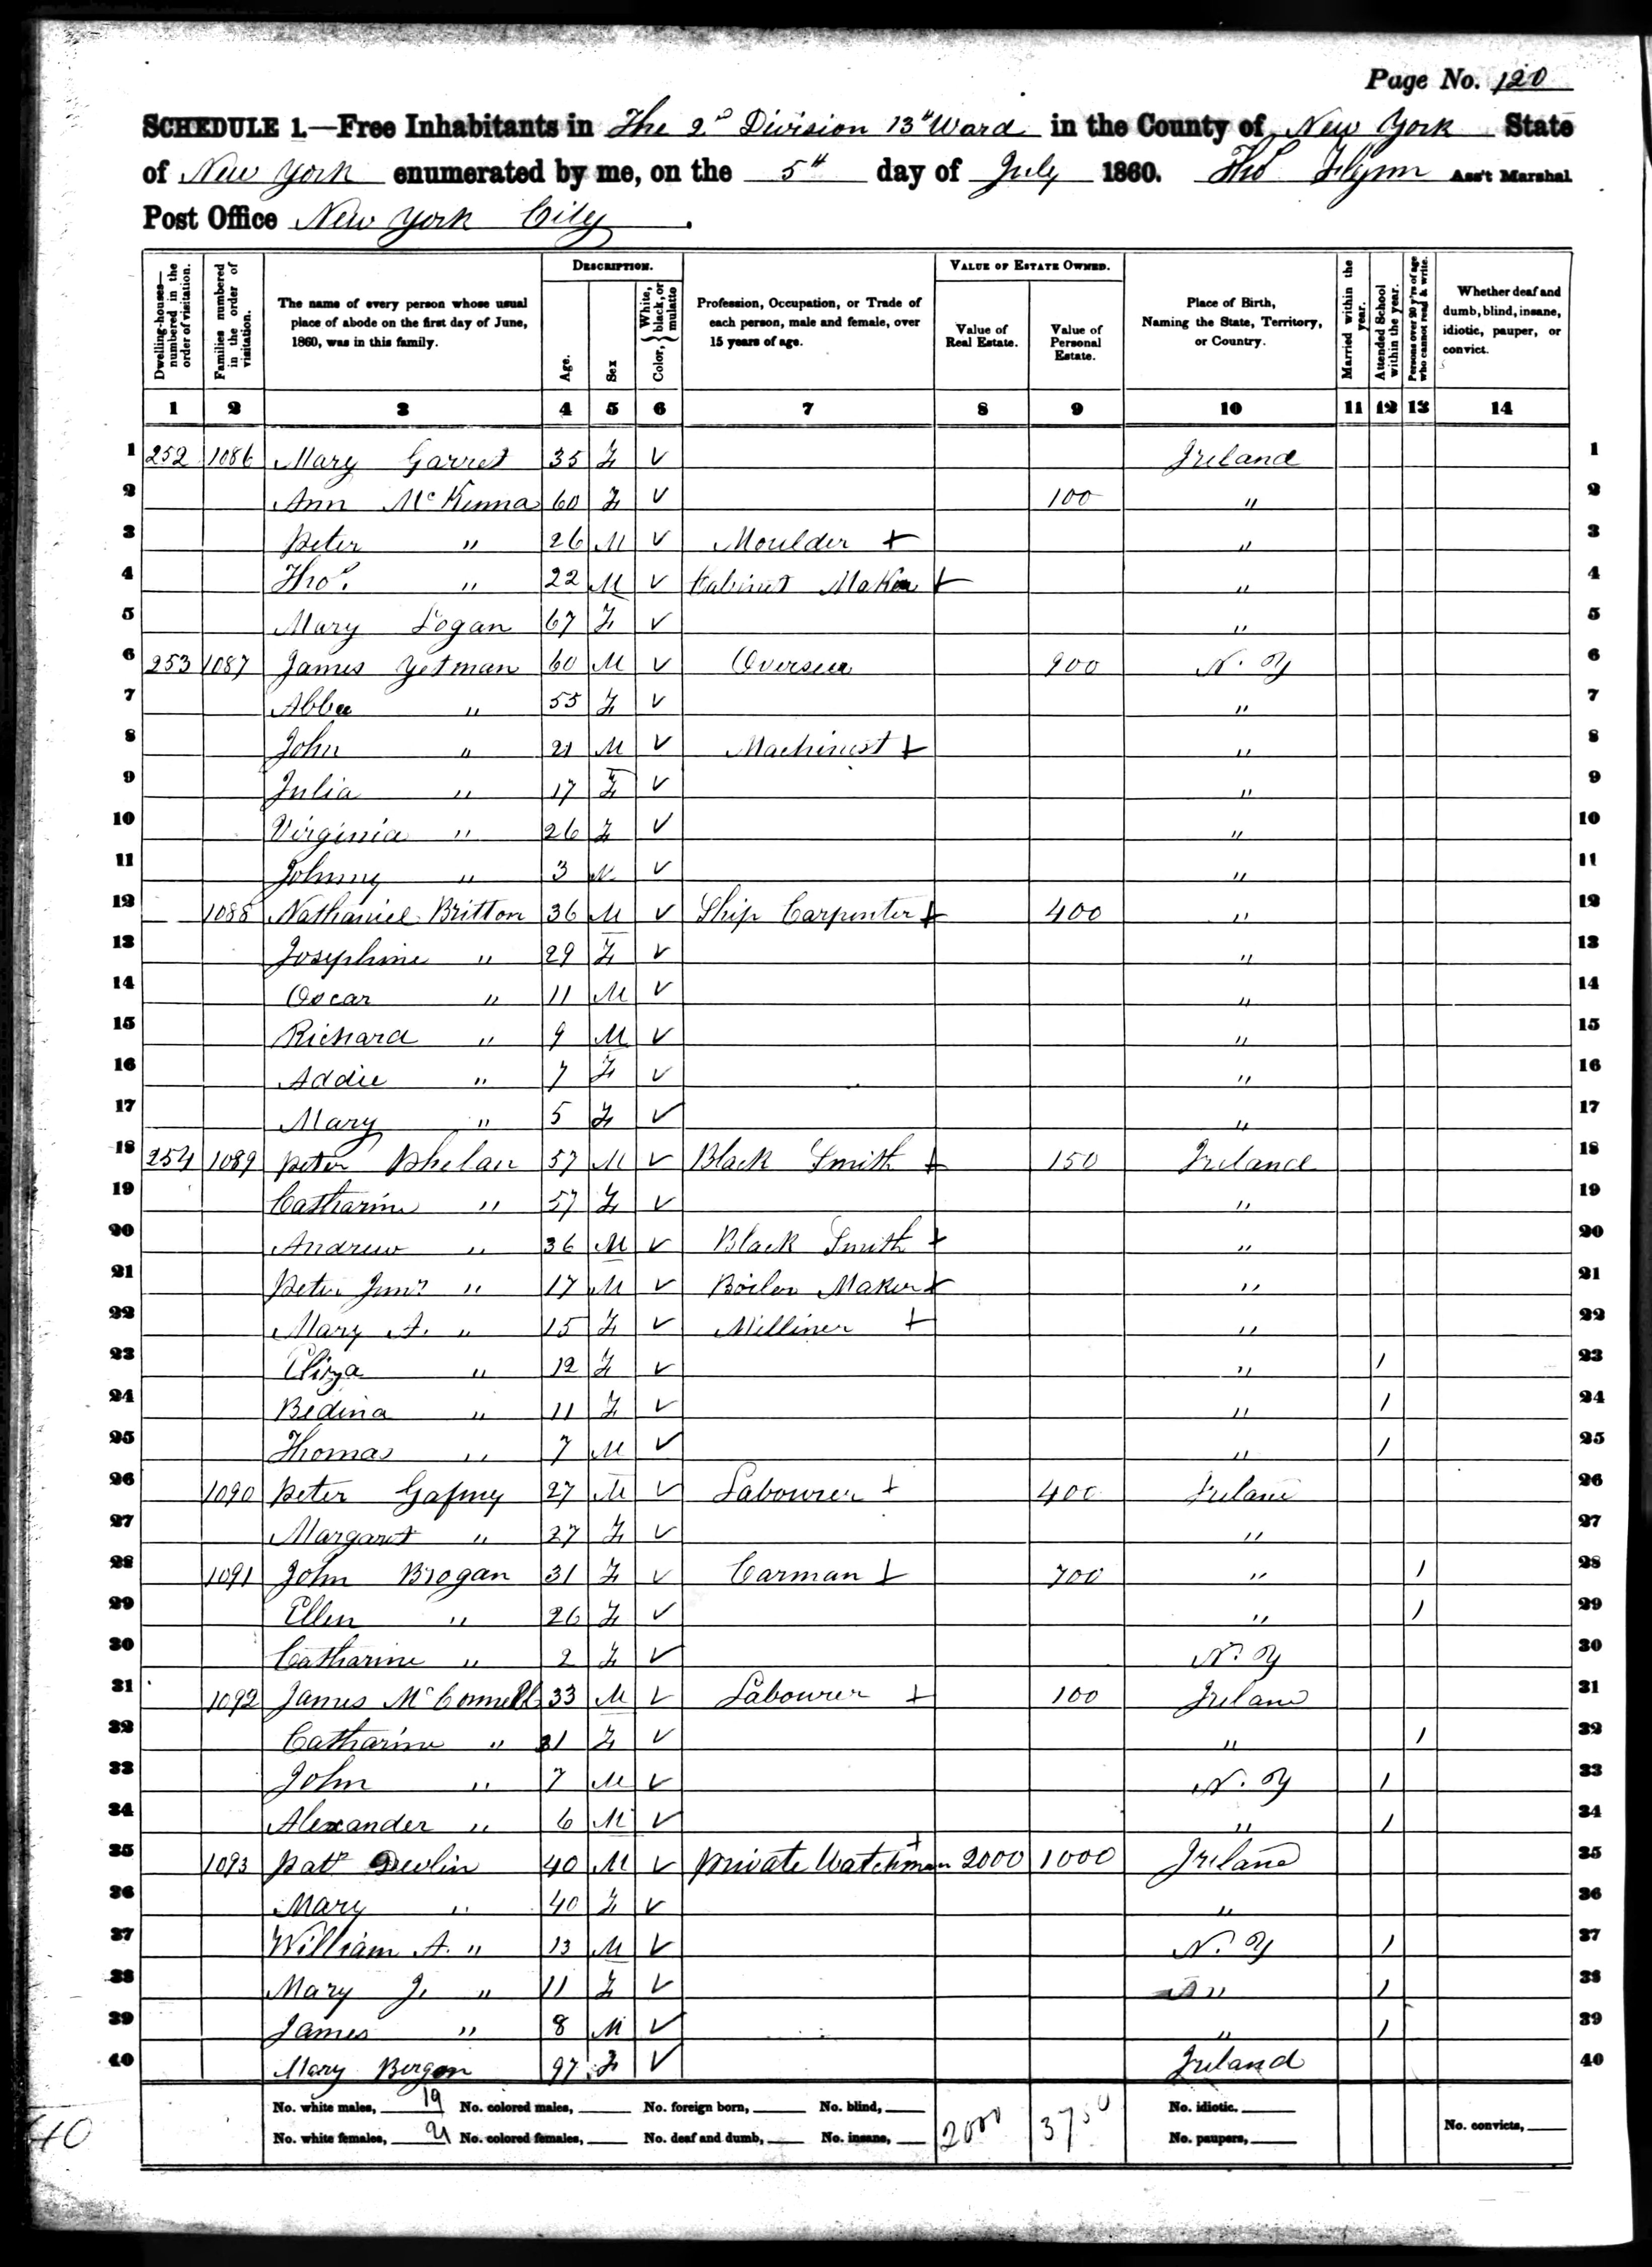 Page No. 120
SCHEDULE 1.—Free Inhabitants in The 2d Division 13th Ward in the County of New York State
of New York enumerated by me, on the 5th day of July 1860. Thos Flynn Ass't Marshal
Post Office New York City.
Dwelling-houses—numbered in the order of visitation.
Families numbered in the order of visitation.
The name of every person whose usual place of abode on the first day of June, 1860, was in this family.
DESCRIPTION.
Age.
Sex
Color, White, black, or mulatto
Profession, Occupation, or Trade of each person, male and female, over 15 years of age.
VALUE OF ESTATE OWNED.
Value of Real Estate.
Value of Personal Estate.
Place of Birth, Naming the State, Territory, or Country.
Married within the year.
Attended School within the year.
Persons over 20 y'rs of age who cannot read & write.
Whether deaf and dumb, blind, insane, idiotic, pauper, or convict.
1 2 3 4 5 6 7 8 9 10 11 12 13 14
1 252 1086 Mary Garret 35 F ✓ Ireland 1
2 Ann McKenna 60 F ✓ 100 " 2
3 Peter " 26 M ✓ Moulder + " 3
4 Thos. " 22 M ✓ Cabinet Maker + " 4
5 Mary Logan 67 F ✓ " 5
6 253 1087 James Yetman 60 M ✓ Overseer 900 N. Y 6
7 Abbee " 55 F ✓ " 7
8 John " 21 M ✓ Machinist + " 8
9 Julia " 17 F ✓ " 9
10 Virginia " 26 F ✓ " 10
11 Johnny " 3 M ✓ " 11
12 1088 Nathaniel Britton 36 M ✓ Ship Carpenter + 400 " 12
13 Josephine " 29 F ✓ " 13
14 Oscar " 11 M ✓ " 14
15 Richard " 9 M ✓ " 15
16 Addie " 7 F ✓ " 16
17 Mary " 5 F ✓ " 17
18 254 1089 Peter Phelan 57 M ✓ Black Smith + 150 Ireland 18
19 Catharine " 57 F ✓ " 19
20 Andrew " 36 M ✓ Black Smith + " 20
21 Peter Junr " 17 M ✓ Boiler Maker + " 21
22 Mary A. " 15 F ✓ Milliner + " 22
23 Eliza " 12 F ✓ " / 23
24 Bedina " 11 F ✓ " / 24
25 Thomas " 7 M ✓ " / 25
26 1090 Peter Gafney 27 M ✓ Labourer + 400 Ireland 26
27 Margaret " 27 F ✓ " 27
28 1091 John Brogan 31 F ✓ Carman + 700 " / 28
29 Ellen " 26 F ✓ " / 29
30 Catharine " 2 F ✓ N. Y 30
31 1092 James McConnell 33 M ✓ Labourer + 100 Ireland 31
32 Catharine " 31 F ✓ " / 32
33 John " 7 M ✓ N. Y / 33
34 Alexander " 6 M ✓ " / 34
35 1093 Patk Devlin 40 M ✓ Private Watchman + 2000 1000 Ireland 35
36 Mary " 40 F ✓ " 36
37 William A. " 13 M ✓ N. Y / 37
38 Mary J. " 11 F ✓ " / 38
39 James " 8 M ✓ " / 39
40 Mary Bergen 97 F ✓ Ireland 40
No. white males, 19 No. colored males, No. foreign born, No. blind, 2000 3750 No. idiotic,
No. white females, 21 No. colored females, No. deaf and dumb, No. insane, No. paupers, No. convicts,
40